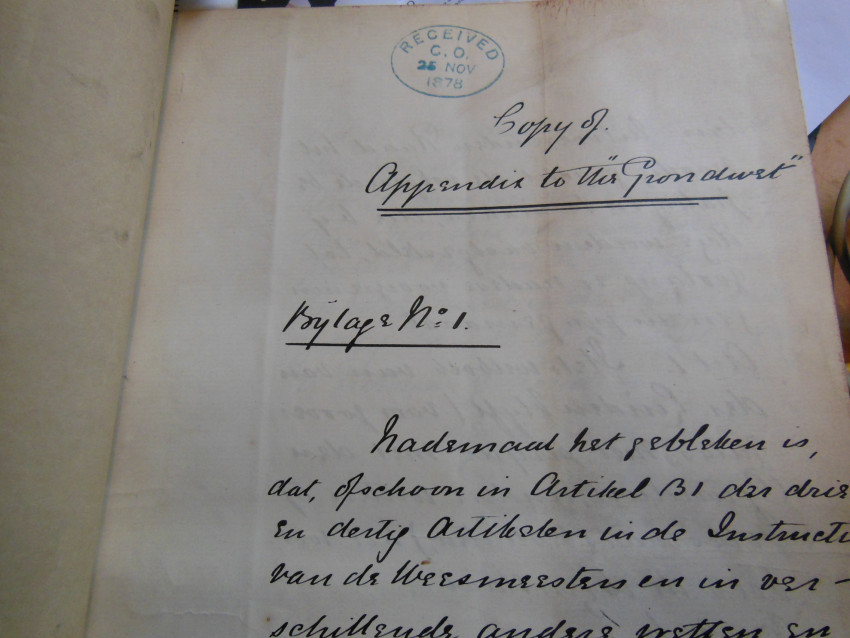 RECEIVED
C. O.
25 NOV
1878
Copy of
Appendix to the "Grondwet"
Bijlage No. 1.
Nademaal het gebleken is,
dat, ofschoon in Artikel 31 der drie
en dertig Artikelen in de Instructi
van de Weesmeesters en in ver-
schillende andere wetten en